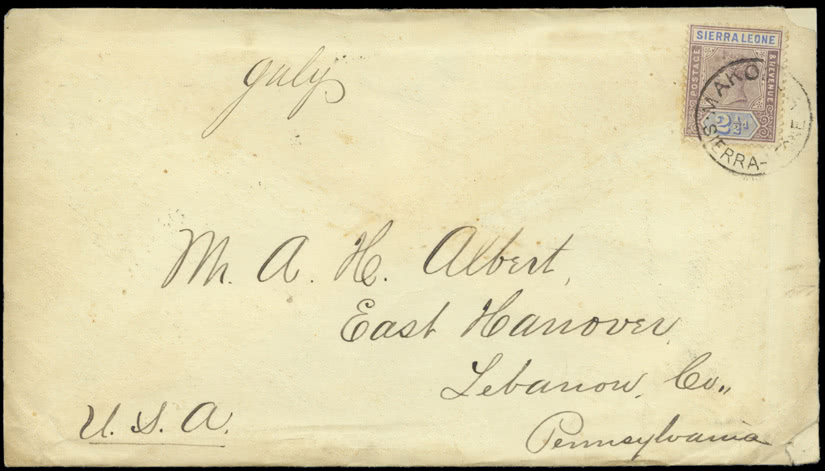 SIERRA LEONE
POSTAGE
& REVENUE
2½d
MAKO
SIERRA-
July
Mr. A. H. Albert,
East Hanover,
Lebanon, Co.,,
Pennsylvania
U. S. A.